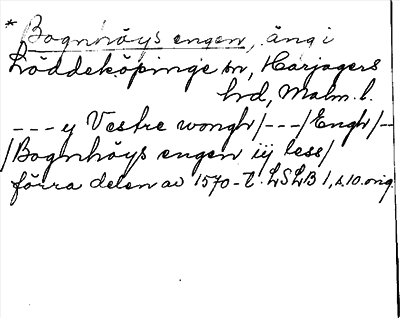 * Bognhöys engen, äng i
Löddeköpinge sn, Harjagers
hrd, Malm. l.
--- y Vestre wongh/---/Engh/--
/Bognhöys engen iij less/
förra delen av 1570-t. LSLB 1, s. 10. orig.